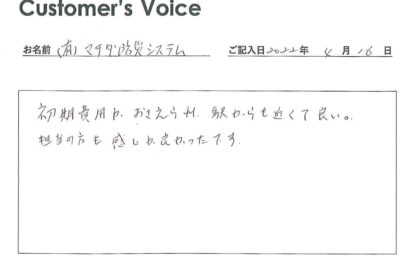 Customer's Voice
お名前 (有)マチダ防災システム ご記入日 2022年 4月 16日
初期費用が おさえられ 駅からも近くて良い。
担当の方も 感じが良かったです